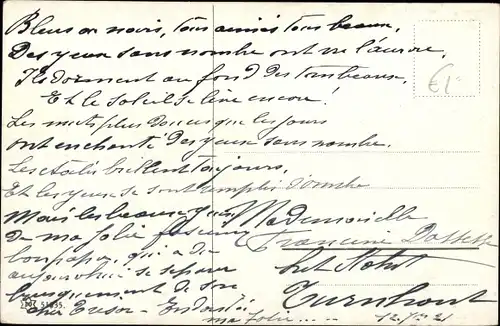 Bleus ou noirs, tous aimés, tous beaux,
Des yeux sans nombre ont vu l'aurore,
Ils dorment au fond des tombeaux,
Et le soleil se lève encore!
Les nuits plus douces que les jours
ont enchanté des yeux sans nombre.
Les étoiles brillent toujours,
Et les yeux se sont remplis d'ombre
Mais les beaux yeux
De ma folie
qui a dû
aujourd'hui se séparer
brusquement de son
cher Trésor - Endors-toi
ma folie.....
Mademoiselle
Francine
Turnhout